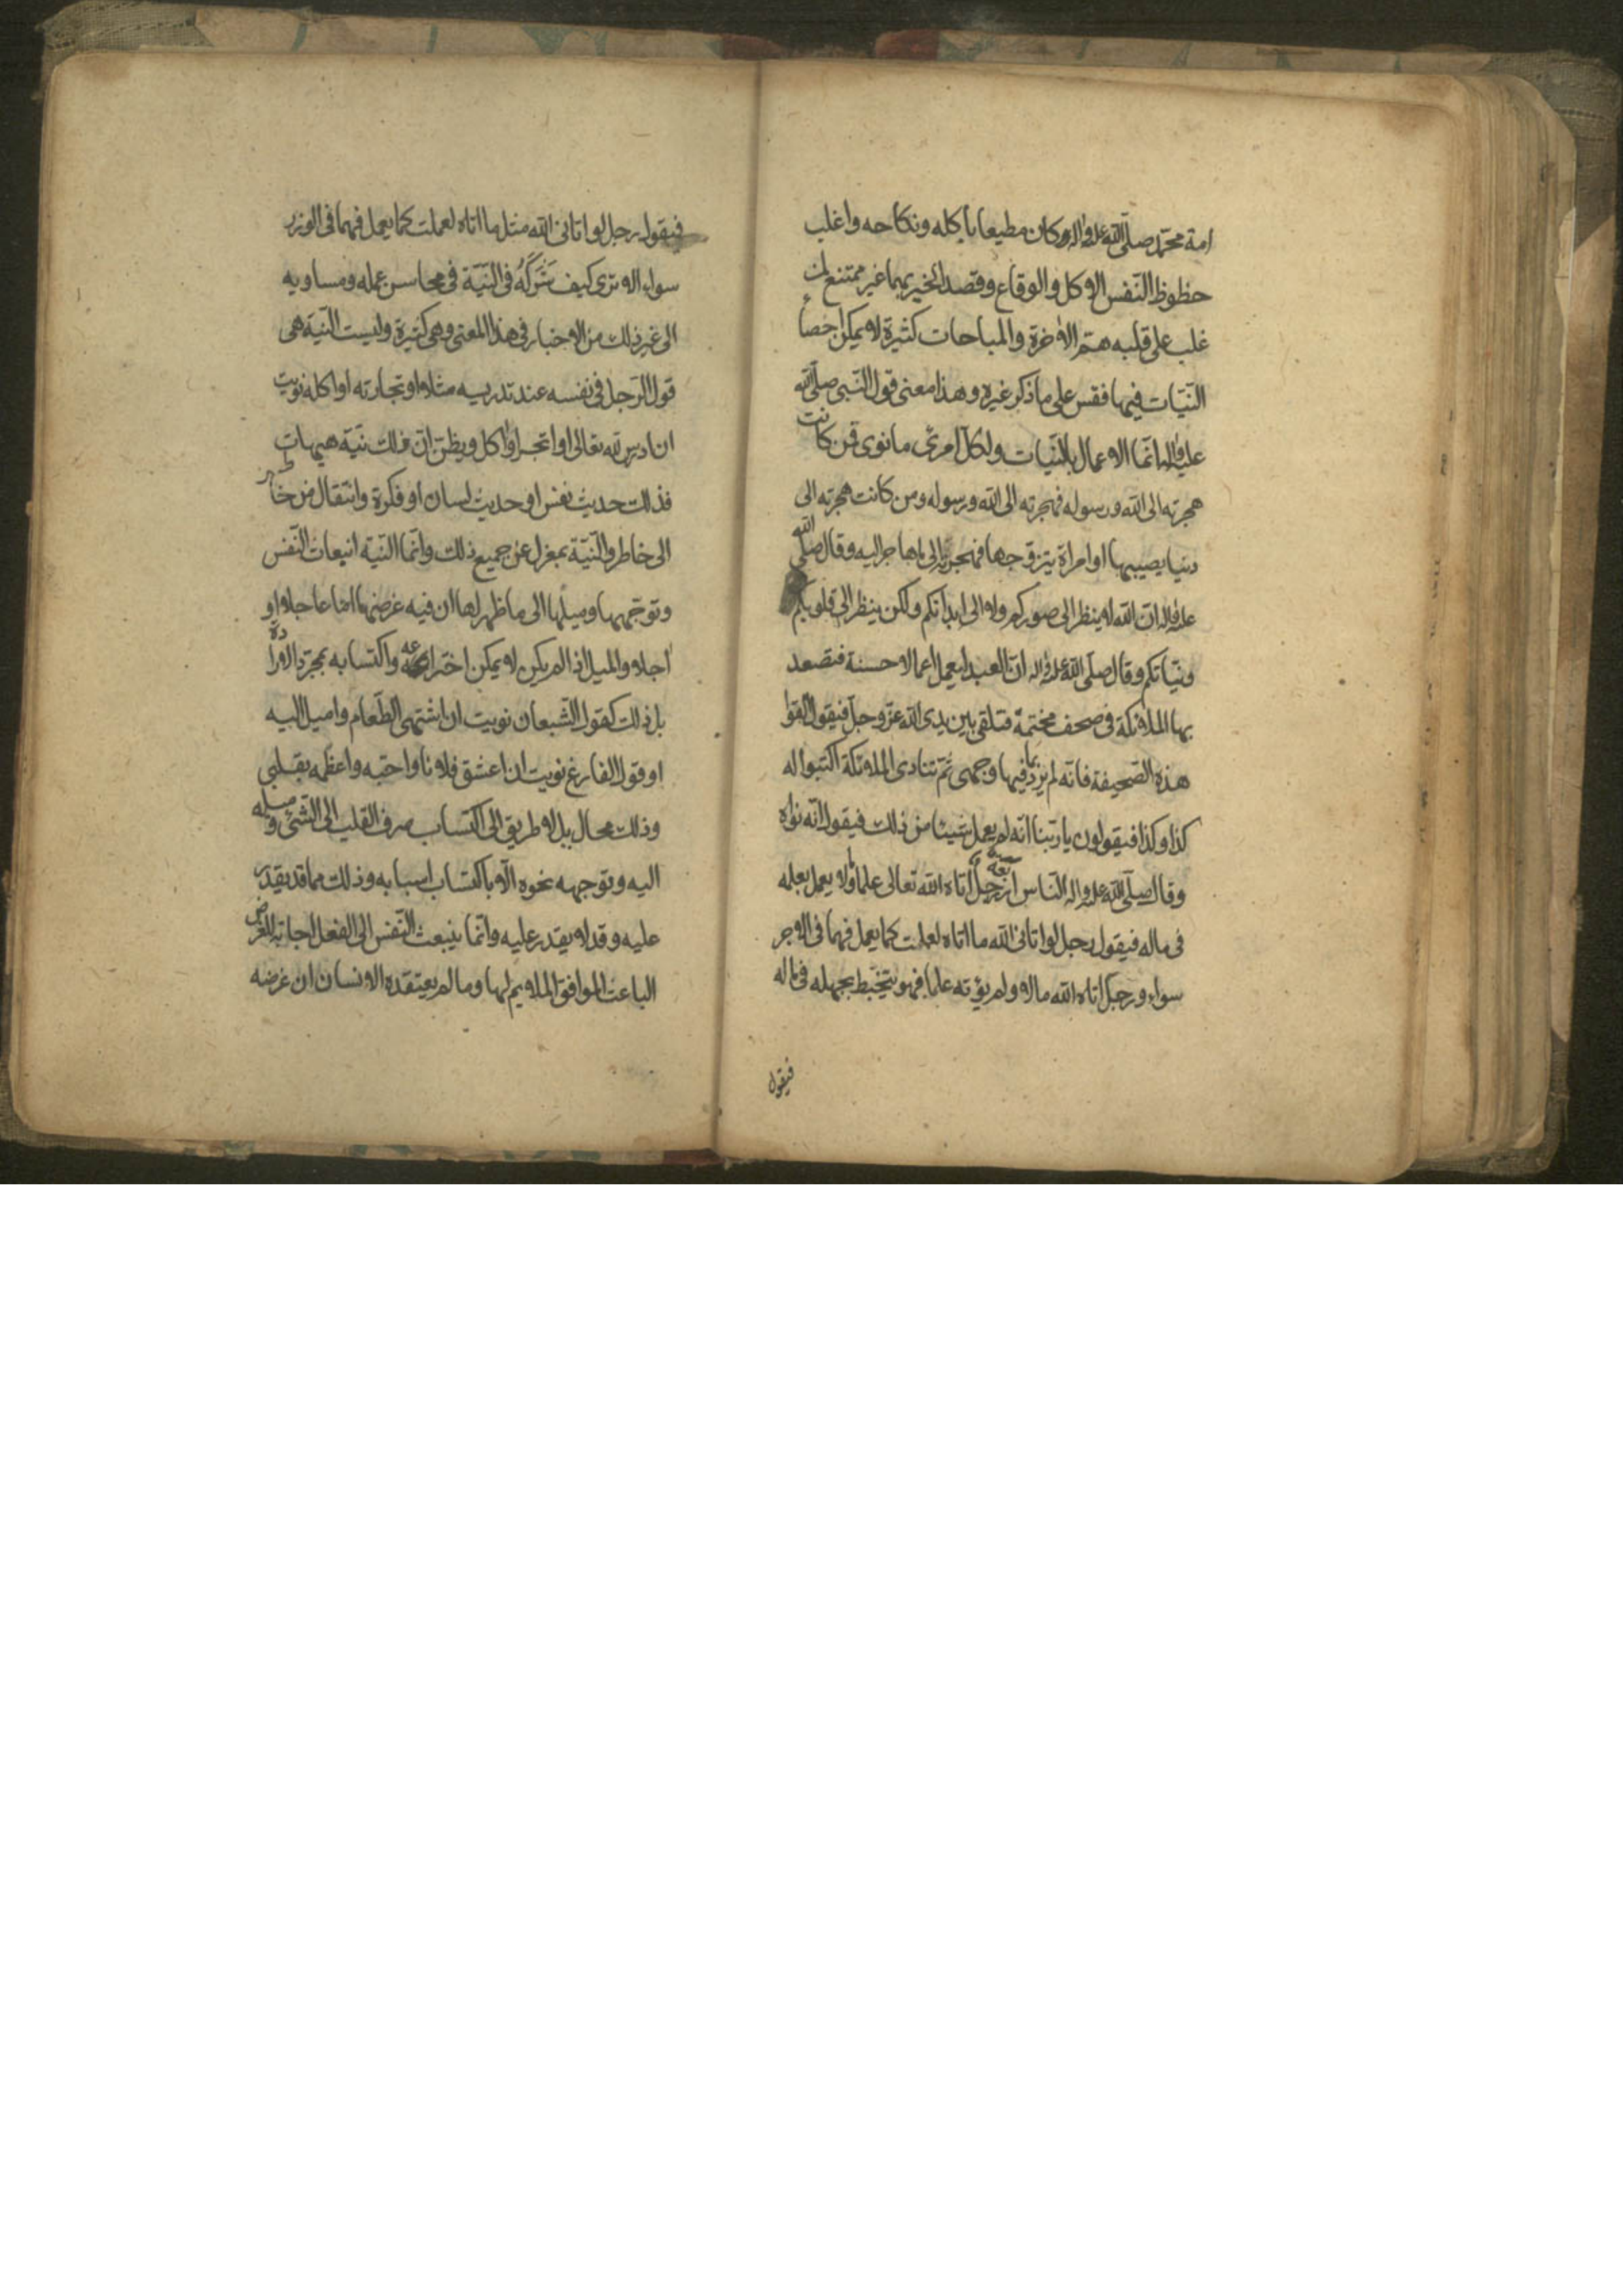 امة محمّد صلّى الله عليه واله وكان مطيعا باكله ونكاحه واغلب
حظوظ النّفس الاكل والوقاع وقصد الخير بهما غير ممتنع لمن
غلب على قلبه همّ الاخرة والمباحات كثيرة لا يمكن احصاء
النّيّات فيها فقس على ما ذكر غيره وهذا معنى قول النّبى صلّى الله
عليه واله انّما الاعمال بالنّيات ولكلّ امرئ ما نوى فمن كانت
هجرته الى الله ورسوله فهجرته الى الله ورسوله ومن كانت هجرته الى
دنيا يصيبها او امراة يتزوّجها فهجرته الى ما هاجر اليه وقال صلّى الله
عليه واله انّ الله لا ينظر الى صوركم ولا الى ابدانكم ولكن ينظر الى قلوبكم
ونيّاتكم وقال صلّى الله عليه واله انّ العبد ليعمل اعمالا حسنة فتصعد
بها الملائكة فى صحف مختمة فتلقى بين يدى الله عزّ وجلّ فيقول القوا
هذه الصّحيفة فانّه لم يرد بما فيها وجهى ثمّ تنادى الملائكة اكتبوا له
كذا وكذا فيقولون يا ربّنا انّه لم يعمل شيئا من ذلك فيقول انّه نواه
وقال صلّى الله عليه واله النّاس اربعة رجل اتاه الله تعالى علما ومالا يعمل بعلمه
فى ماله فيقول رجل لو اتانى الله ما اتاه لعملت كما يعمل فهما فى الاجر
سواء ورجل اتاه الله مالا ولم يؤته علما فهو يتخبّط بجهله فى ماله
فيقول
فيقول رجل لو اتانى الله مثل ما اتاه لعملت كما يعمل فهما فى الوزر
سواء الا ترى كيف شَرَكَهُ فى النّيّة فى محاسن عمله ومساويه
الى غير ذلك من الاخبار فى هذا المعنى وهى كثيرة وليست النّيّة هى
قول الرّجل فى نفسه عند تدريسه مثلا او تجارته او اكله نويت
ان ادرس لله تعالى او اتجر او اكل ويظنّ انّ ذلك نيّة هيهات
فذلك حديث نفس او حديث لسان او فكرة وانتقال من خاطر
الى خاطر والنّيّة بمعزل عن جميع ذلك وانّما النّيّة انبعاث النّفس
وتوجّهها وميلها الى ما ظهر لها ان فيه غرضها امّا عاجلا او
اجلا والميل اذا لم يكن لا يمكن اختراعه واكتسابه بمجرّد الارادة
بل ذلك كقول الشّبعان نويت ان اشتهى الطّعام واميل اليه
او قول الفارغ نويت ان اعشق فلانا واحبّه واعظّمه بقلبى
وذلك محال بل لا طريق الى اكتساب صرف القلب الى الشّئ وميله
اليه وتوجهه نحوه الّا باكتساب اسبابه وذلك مما قد يقدر
عليه وقد لا يقدر عليه وانّما ينبعث النّفس الى الفعل اجابة للغرض
الباعث الموافق الملايم لها وما لم يعتقده الانسان ان غرضه